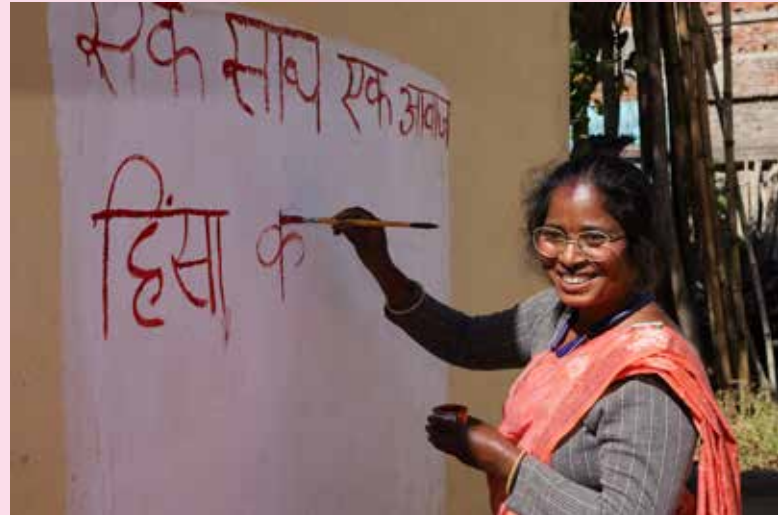 एक साथ एक आवाज
हिंसा क